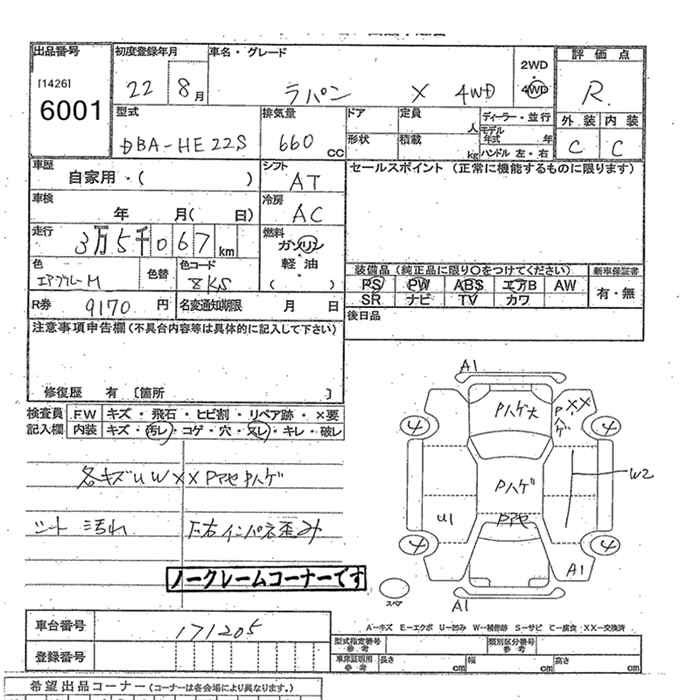 出品番号
初度登録年月
車名・グレード
評価点
[1426]
6001
22 8月
ラパン X 4WD
2WD
・
4WD
R
型式
DBA-HE22S
排気量
660 CC
ドア
定員 人
ディーラー・並行
形状
積載 kg
モデル年式 年
ハンドル 左・右
外装 内装
C C
車歴
自家用・( )
シフト
AT
セールスポイント(正常に機能するものに限ります)
車検
年 月( 日)
冷房
AC
走行
3万5千067km
燃料
ガソリン
・
軽油
( )
色
エアブルーM
色替
色コード
ZKS
装備品(純正品に限り○をつけてください)
新車保証書
PS PW ABS エアB AW
SR ナビ TV カワ
有・無
R券 9170円
名変通知期限 月 日
後日品
注意事項申告欄(不具合内容等は具体的に記入して下さい)
修復歴 有 〔箇所 〕
検査員記入欄
F.W キズ・飛石・ヒビ割・リペア跡・×要
内装 キズ・汚レ・コゲ・穴・スレ・キレ・破レ
各キズUWXXPアセPハゲ
シート汚れ
F右インパネ歪み
ノークレームコーナーです
A1
Pハゲ大
XX
Pハゲ
4
4
Pハゲ
W2
U1
Pアセ
4
4
A1
A1
スペア
A-キズ E-エクボ U-凹み W-補修跡 S-サビ C-腐食 XX-交換済
車台番号
171205
登録番号
型式指定番号
類別区分番号
車庫証明用参考
長さ cm
幅 cm
高さ cm
希望出品コーナー(コーナーは各会場により異なります。)